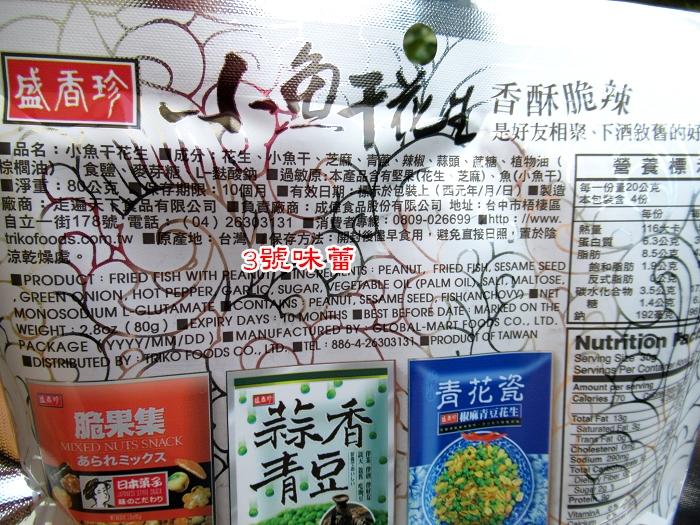 盛香珍
小魚干花生
香酥脆辣
是好友相聚、下酒敘舊的好
■品名：小魚干花生 ■成分：花生、小魚干、芝麻、青蔥、辣椒、蒜頭、蔗糖、植物油(
棕櫚油)、食鹽、麥芽糖、L-麩酸鈉 ■過敏原:本產品含有堅果(花生)、芝麻)、魚(小魚干)
■淨重：80公克 ■保存期限：10個月 ■有效日期：標示於包裝上 (西元年/月/日) ■製造
廠商：走遍天下食品有限公司 ■負責廠商：成偉食品股份有限公司 地址：台中市梧棲區
自立一街178號 電話：(04) 26303131 ■消費者專線：0809-026699 ■http://www.
trikofoods.com.tw ■原產地：台灣 ■保存方法：開封後儘早食用，避免直接日照，置於陰
涼乾燥處。
3號味蕾
■PRODUCT : FRIED FISH WITH PEANUT ■INGREDIENTS : PEANUT, FRIED FISH, SESAME SEED
, GREEN ONION, HOT PEPPER, GARLIC, SUGAR, VEGETABLE OIL (PALM OIL), SALT, MALTOSE,
MONOSODIUM L-GLUTAMATE ■CONTAINS : PEANUT, SESAME SEED, FISH(ANCHOVY) ■NET
WEIGHT : 2.8oz (80g) ■EXPIRY DAYS : 10 MONTHS ■BEST BEFORE DATE : MARKED ON THE
PACKAGE (YYYY/MM/DD) ■MANUFACTURED BY : GLOBAL-MART FOODS CO., LTD.
■DISTRIBUTED BY : TRIKO FOODS CO., LTD. ■TEL : 886-4-26303131 ■PRODUCT OF TAIWAN
營養標
每一份量20公克
本包裝含 4份
每份
熱量 116大卡
蛋白質 6.3公克
脂肪 8.5公克
飽和脂肪 1.9公克
反式脂肪
碳水化合物 3.5公
糖 1.4公克
鈉 192毫克
Nutrition Fa
Serving Size 30g
Servings Per Container
Amount per serving
Calories 170
Total Fat 13g
Saturated Fat 3g
Trans Fat 0g
Cholesterol
Sodium
Total Ca
Dietary Fiber
Sugar 2g
Protein
Vitamin A
Calcium
盛香珍
脆果集
MIXED NUTS SNACK
あられミックス
日本菓子
味のこだわり
盛香珍
蒜香
青豆
青花瓷
盛香珍
椒麻青豆花生